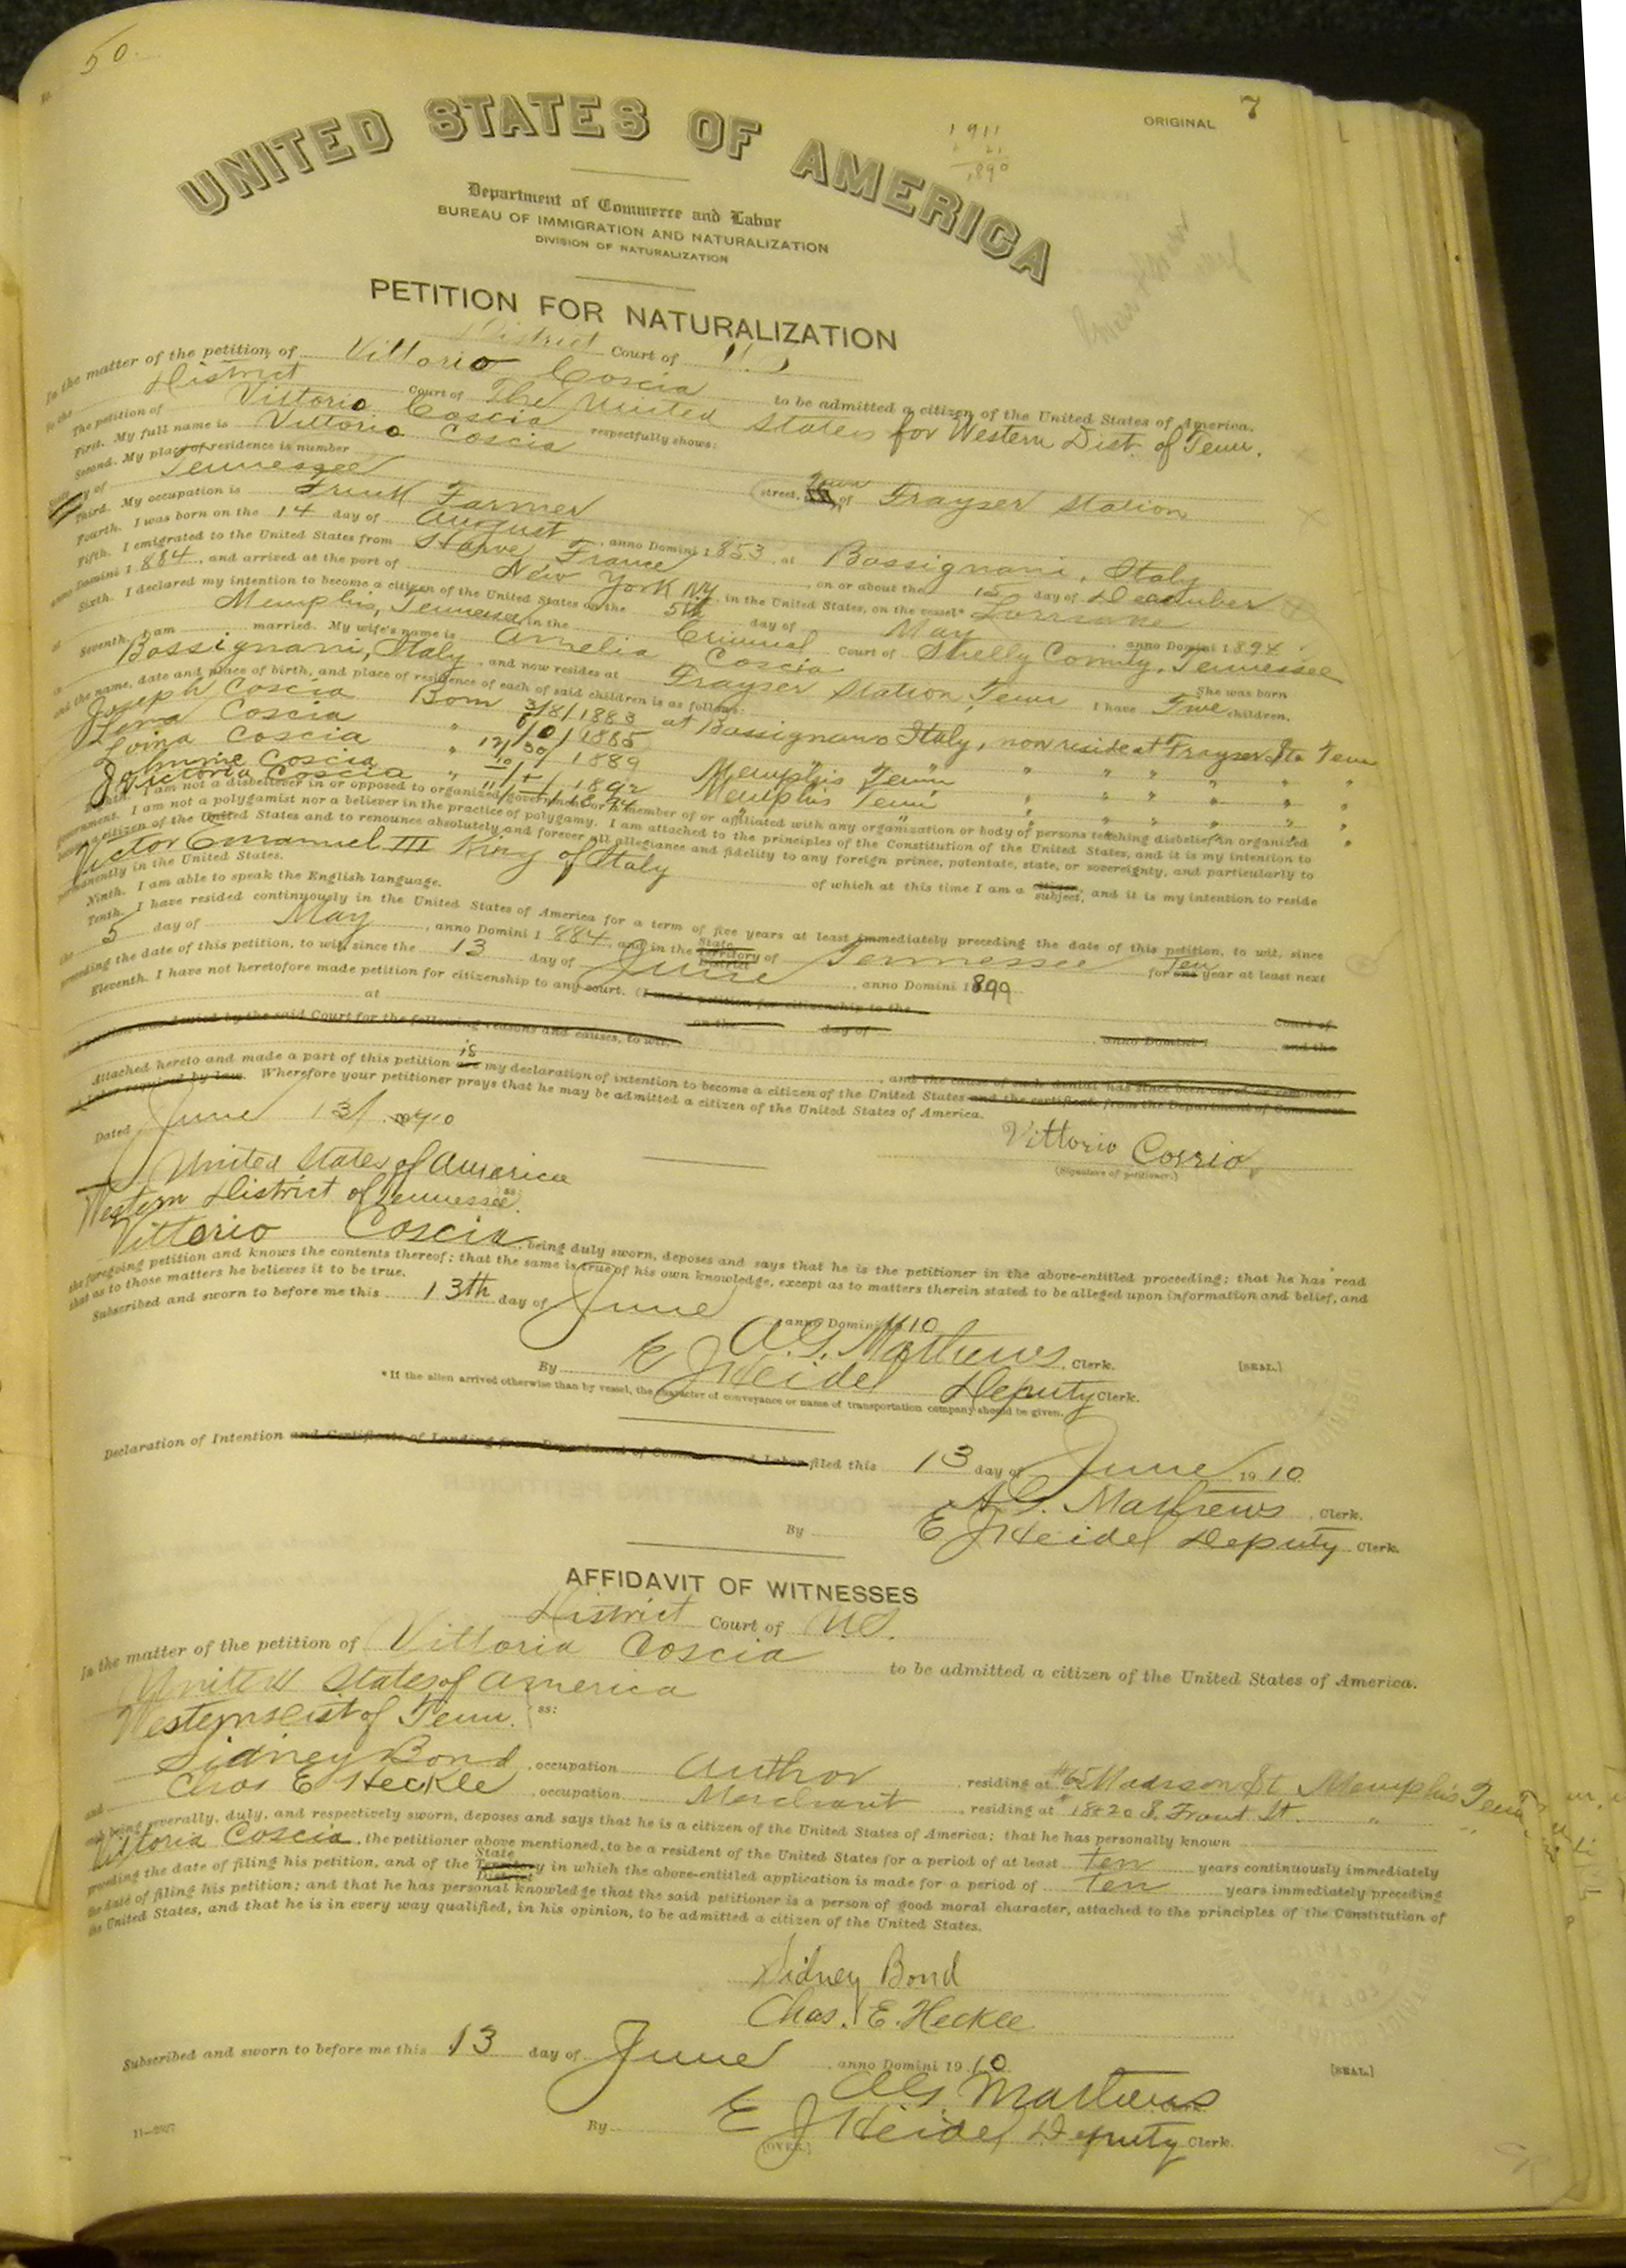 50
ORIGINAL 7
1911
21
1890
UNITED STATES OF AMERICA
Department of Commerce and Labor
BUREAU OF IMMIGRATION AND NATURALIZATION
DIVISION OF NATURALIZATION
PETITION FOR NATURALIZATION
District Court of U.S
In the matter of the petition of Vittorio Coscia to be admitted a citizen of the United States of America.
To the District Court of The United States for Western Dist. of Tenn.
The petition of Vittorio Coscia respectfully shows:
First. My full name is Vittorio Coscia
Second. My place of residence is number street, Town of Frayser Station
Tennessee
Third. My occupation is Fruit Farmer
Fourth. I was born on the 14 day of August, anno Domini 1853 at Bassignani, Italy
Fifth. I emigrated to the United States from Havre France on or about the 15 day of December
anno Domini 1884, and arrived at the port of New York NY in the United States, on the vessel* Lorraine
Sixth. I declared my intention to become a citizen of the United States on the 5th day of May anno Domini 1894
at Memphis, Tennessee, in the Criminal Court of Shelby County, Tennessee
Seventh. I am married. My wife's name is Amelia Coscia She was born
in Bassignani, Italy, and now resides at Frayser Station, Tenn I have Five children,
and the name, date and place of birth, and place of residence of each of said children is as follows:
Joseph Coscia Born 3/8/1883 at Bassignano Italy, now reside at Frayser Sta Tenn
Coscia " 1885 " " " " "
Coscia " 12/30/1889 Memphis Tenn " " " " "
Johnnie Coscia " 1892 Memphis Tenn " " " " "
Victoria Coscia " 1894 " " " " " "
Eighth. I am not a disbeliever in or opposed to organized government or a member of or affiliated with any organization or body of persons teaching disbelief in organized
government. I am not a polygamist nor a believer in the practice of polygamy. I am attached to the principles of the Constitution of the United States, and it is my intention to
become a citizen of the United States and to renounce absolutely and forever all allegiance and fidelity to any foreign prince, potentate, state, or sovereignty, and particularly to
Victor Emanuel III King of Italy of which at this time I am a citizen, subject, and it is my intention to reside
permanently in the United States.
Ninth. I am able to speak the English language.
Tenth. I have resided continuously in the United States of America for a term of five years at least immediately preceding the date of this petition, to wit, since
the 5 day of May, anno Domini 1884, and in the State Territory District of Tennessee for Ten one year at least next
preceding the date of this petition, to wit, since the 13 day of June, anno Domini 1899
Eleventh. I have not heretofore made petition for citizenship to any court. (I made petition for citizenship to the Court of
at on the day of, anno Domini 1 and the
said petition was denied by the said Court for the following reasons and causes, to wit, , and the cause of such denial has since been cured or removed.)
Attached hereto and made a part of this petition is are my declaration of intention to become a citizen of the United States and the certificate from the Department of Commerce
and Labor required by law. Wherefore your petitioner prays that he may be admitted a citizen of the United States of America.
Dated June 13/ 1910
Vittorio Coscia
(Signature of petitioner.)
United States of America
Western District of Tennessee ss:
Vittorio Coscia, being duly sworn, deposes and says that he is the petitioner in the above-entitled proceeding; that he has read
the foregoing petition and knows the contents thereof; that the same is true of his own knowledge, except as to matters therein stated to be alleged upon information and belief, and
that as to those matters he believes it to be true.
Subscribed and sworn to before me this 13th day of June anno Domini 1910
A.G. Mathews, Clerk. [SEAL.]
By E J Heidel Deputy Clerk.
*If the alien arrived otherwise than by vessel, the character of conveyance or name of transportation company should be given.
Declaration of Intention and Certificate of Landing from Department of Commerce and Labor filed this 13 day of June 1910
A.G. Mathews, Clerk.
By E J Heidel Deputy Clerk.
AFFIDAVIT OF WITNESSES
District Court of U.S.
In the matter of the petition of Vittoria Coscia to be admitted a citizen of the United States of America.
United States of America
Western Dist of Tenn. ss:
Sidney Bond, occupation Author, residing at #65 Madison St Memphis Tenn
and Chas E Heckle, occupation Merchant, residing at # 18 & 20 S. Front St. " "
each being severally, duly, and respectively sworn, deposes and says that he is a citizen of the United States of America; that he has personally known
Vittoria Coscia, the petitioner above mentioned, to be a resident of the United States for a period of at least ten years continuously immediately
preceding the date of filing his petition, and of the State Territory District in which the above-entitled application is made for a period of ten years immediately preceding
the date of filing his petition; and that he has personal knowledge that the said petitioner is a person of good moral character, attached to the principles of the Constitution of
the United States, and that he is in every way qualified, in his opinion, to be admitted a citizen of the United States.
Sidney Bond
Chas. E. Heckle
Subscribed and sworn to before me this 13 day of June, anno Domini 1910 [SEAL.]
A.G. Mathews Clerk.
By E J Heidel Deputy Clerk.
[OVER.]